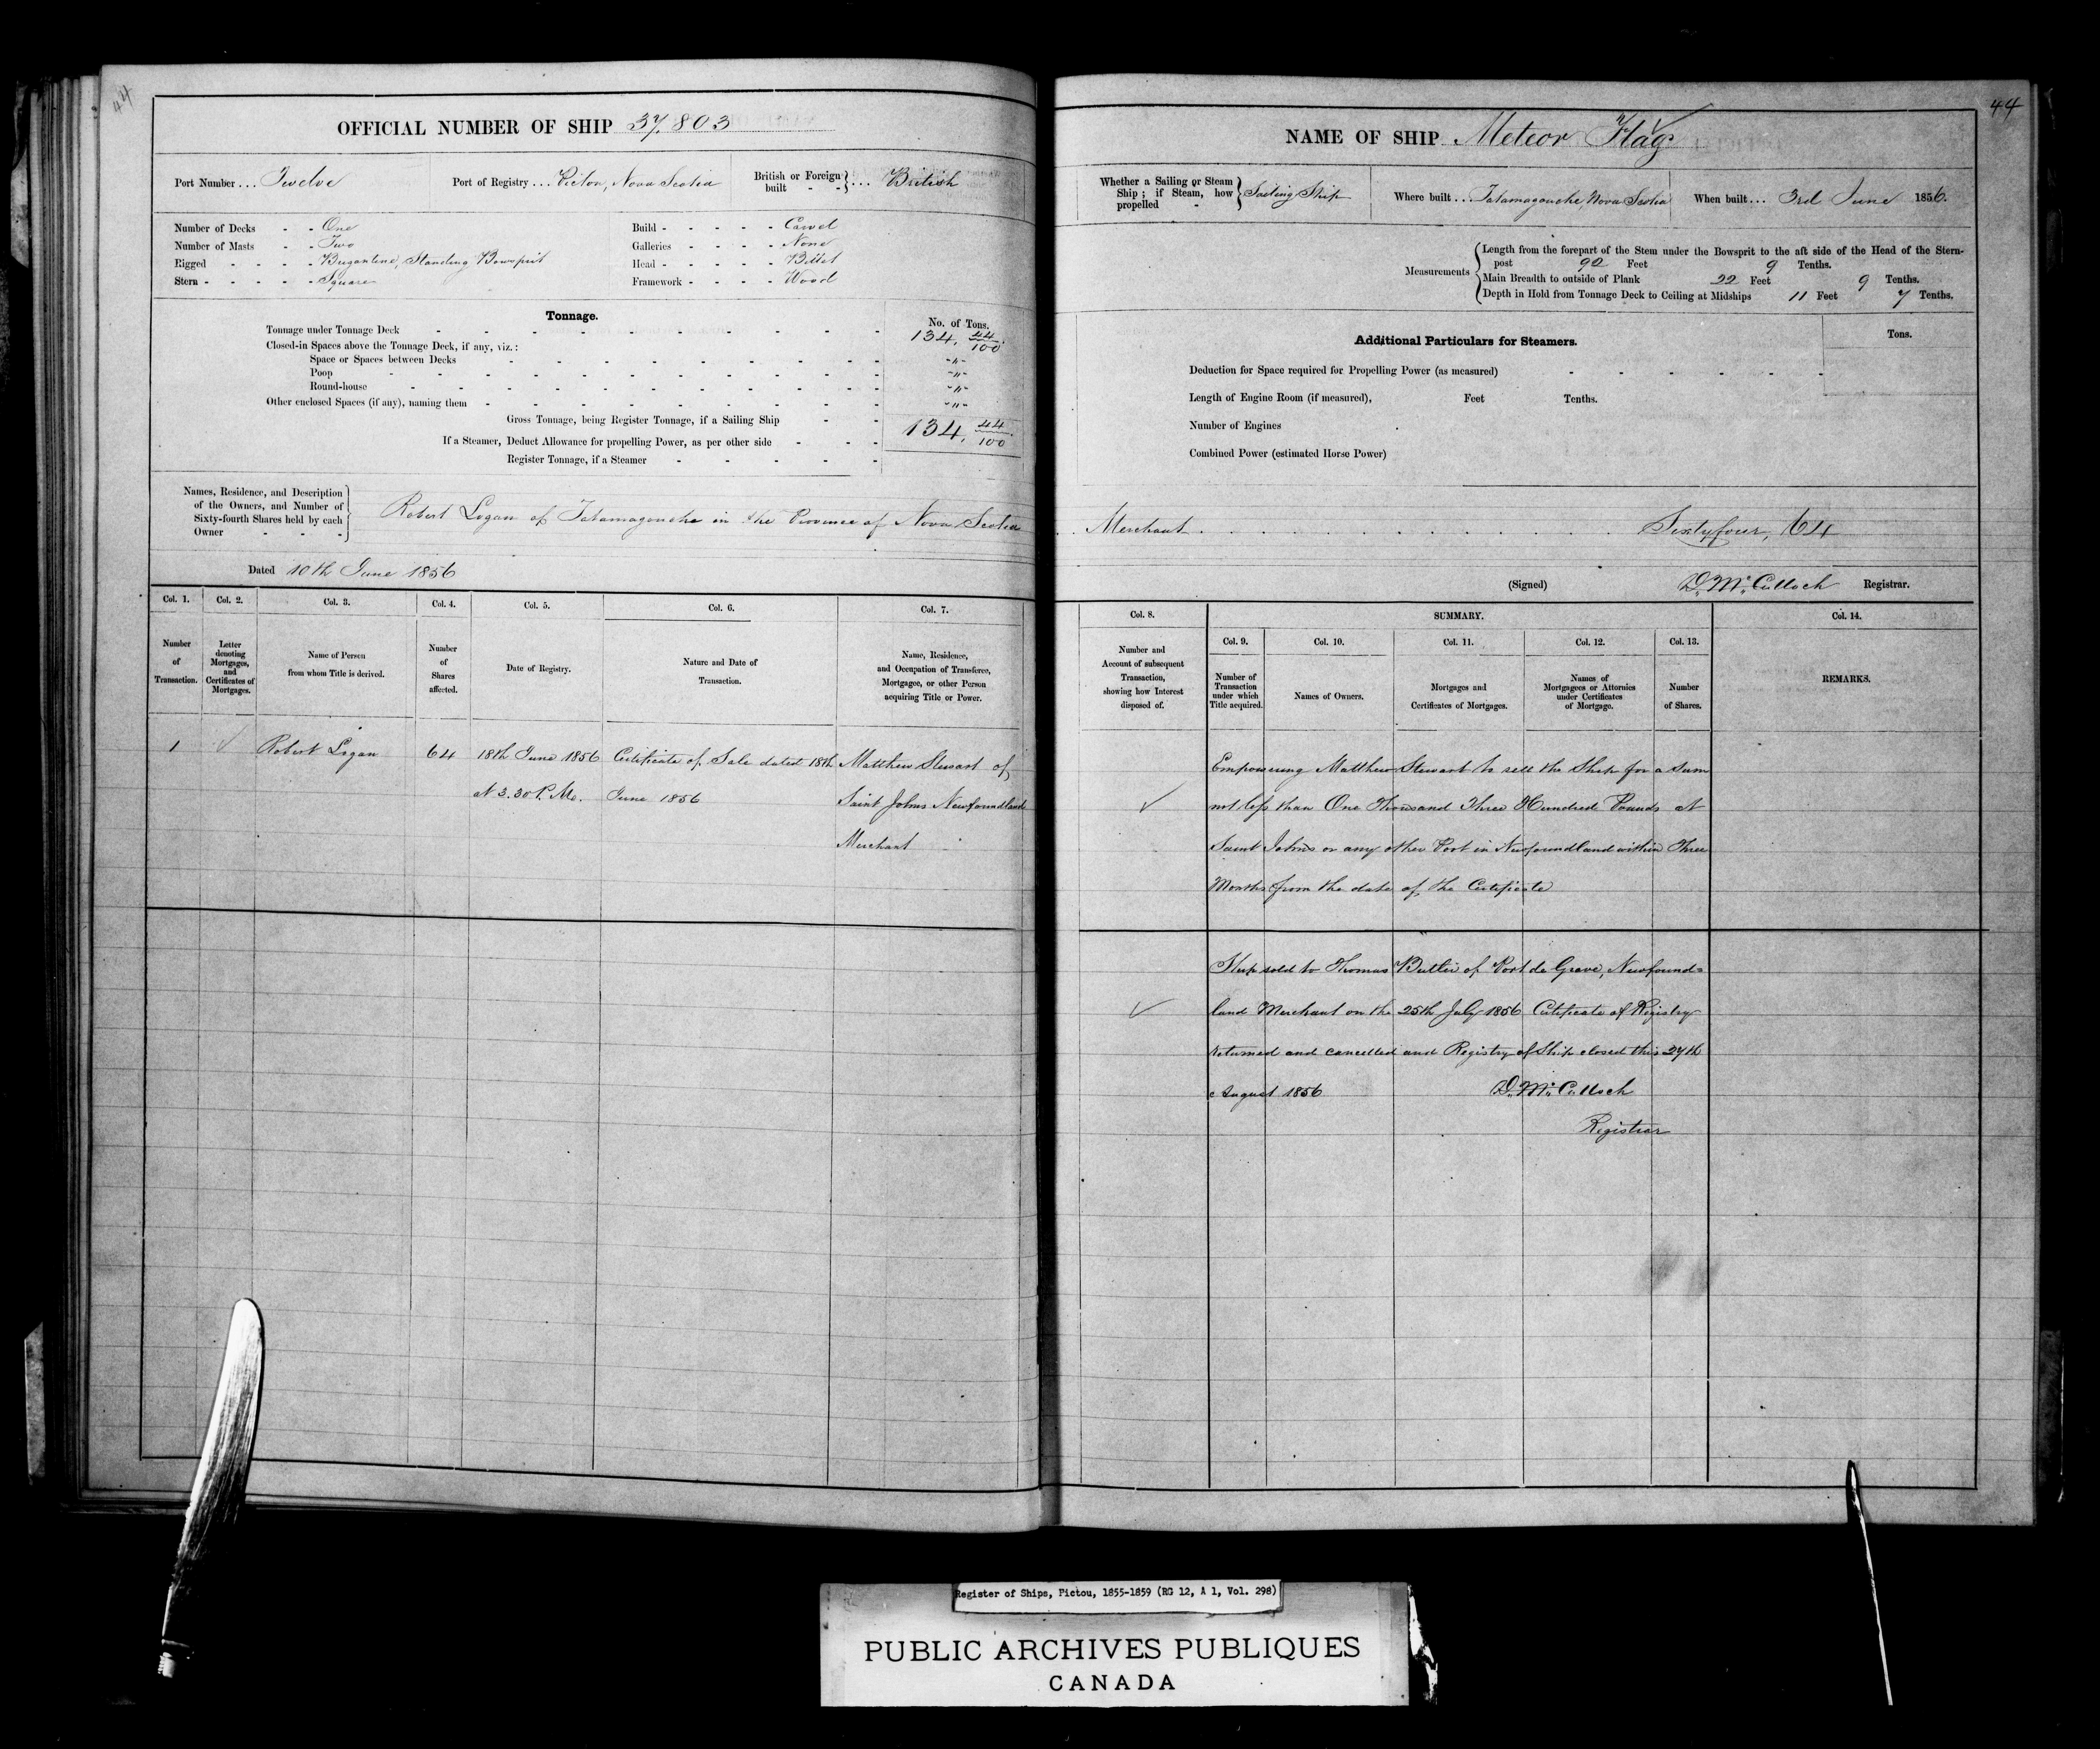 44
OFFICIAL NUMBER OF SHIP 37.803
Port Number ... Twelve
Port of Registry ... Pictou, Nova Scotia
British or Foreign built - - } ... British
Number of Decks - - One
Number of Masts - - Two
Rigged - - - - Brigantine, Standing Bowsprit
Stern - - - - - Square
Build - - - - - Carvel
Galleries - - - - None
Head - - - - - Billet
Framework - - - - Wood
Tonnage.
No. of Tons.
Tonnage under Tonnage Deck 134. 44/100.
Closed-in Spaces above the Tonnage Deck, if any, viz.:
Space or Spaces between Decks - " -
Poop - " -
Round-house - " -
Other enclosed Spaces (if any), naming them - " -
Gross Tonnage, being Register Tonnage, if a Sailing Ship 134. 44/100.
If a Steamer, Deduct Allowance for propelling Power, as per other side
Register Tonnage, if a Steamer
Names, Residence, and Description
of the Owners, and Number of
Sixty-fourth Shares held by each
Owner - - -
Robert Logan of Tatamagouche in the Province of Nova Scotia
Dated 10th June 1856
Col. 1. Col. 2. Col. 3. Col. 4. Col. 5. Col. 6. Col. 7.
Number of Transaction.
Letter denoting Mortgages, and Certificates of Mortgages.
Name of Person from whom Title is derived.
Number of Shares affected.
Date of Registry.
Nature and Date of Transaction.
Name, Residence, and Occupation of Transferee, Mortgagee, or other Person acquiring Title or Power.
1 Robert Logan 64 18th June 1856 Certificate of Sale dated 18th Matthew Stewart of
at 3.30 P. M. June 1856 Saint Johns Newfoundland
Merchant
44
NAME OF SHIP Meteor Flag
Whether a Sailing or Steam Ship; if Steam, how propelled - } Sailing Ship
Where built ... Tatamagouche, Nova Scotia
When built ... 3rd June 1856.
Measurements
Length from the forepart of the Stem under the Bowsprit to the aft side of the Head of the Stern-
post 92 Feet 9 Tenths.
Main Breadth to outside of Plank 22 Feet 9 Tenths.
Depth in Hold from Tonnage Deck to Ceiling at Midships 11 Feet 7 Tenths.
Additional Particulars for Steamers.
Tons.
Deduction for Space required for Propelling Power (as measured)
Length of Engine Room (if measured), Feet Tenths.
Number of Engines
Combined Power (estimated Horse Power)
Merchant Sixty four, 64
(Signed) D. McCulloch Registrar.
Col. 8. SUMMARY. Col. 14.
Col. 9. Col. 10. Col. 11. Col. 12. Col. 13.
Number and Account of subsequent Transaction, showing how Interest disposed of.
Number of Transaction under which Title acquired.
Names of Owners.
Mortgages and Certificates of Mortgages.
Names of Mortgagees or Attornies under Certificates of Mortgage.
Number of Shares.
REMARKS.
Empowering Matthew Stewart to sell the Ship for a sum
not less than One Thousand Three Hundred Pounds at
Saint Johns or any other Port in Newfoundland within Three
Months from the date of the Certificate
Ship sold to Thomas Butler of Port de Grave, Newfound=
land Merchant on the 25th July 1856 Certificate of Registry
returned and cancelled and Registry of Ship closed this 27th
August 1856 D. McCulloch
Registrar
Register of Ships, Pictou, 1855-1859 (RG 12, A 1, Vol. 298)
PUBLIC ARCHIVES PUBLIQUES
CANADA